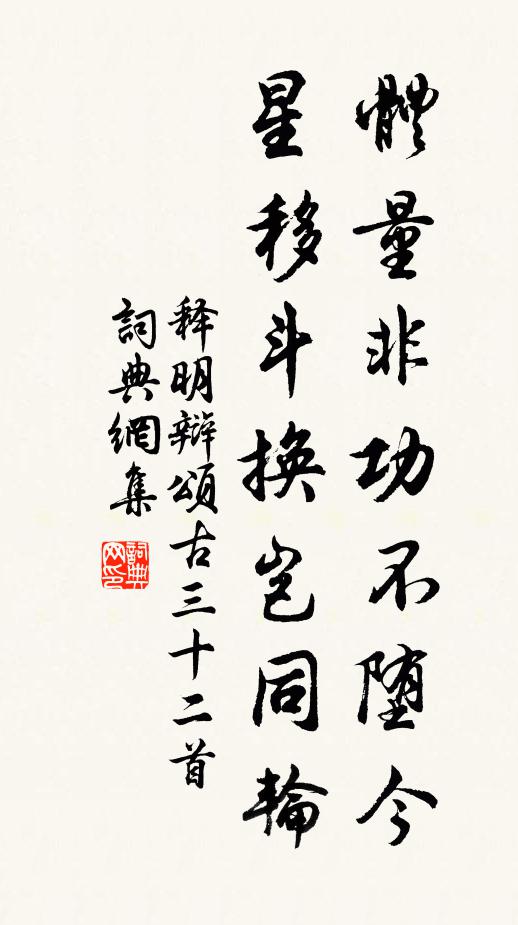 體量非功不堕今
星移斗換岂同輪
释明辯頌古三十二首
詞典網集
詞典网印